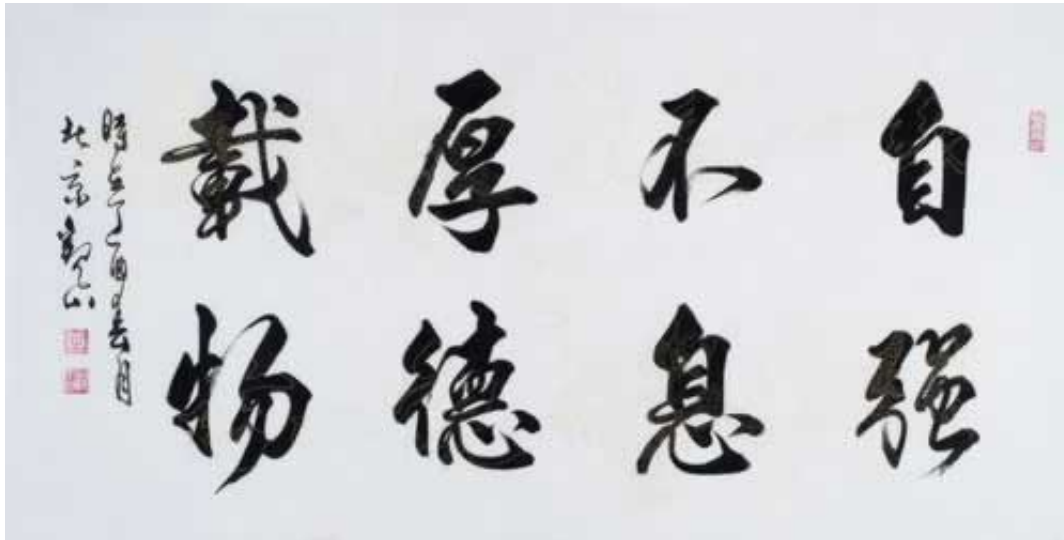 自强
不息
厚德
载物
時在丁酉春月
北京